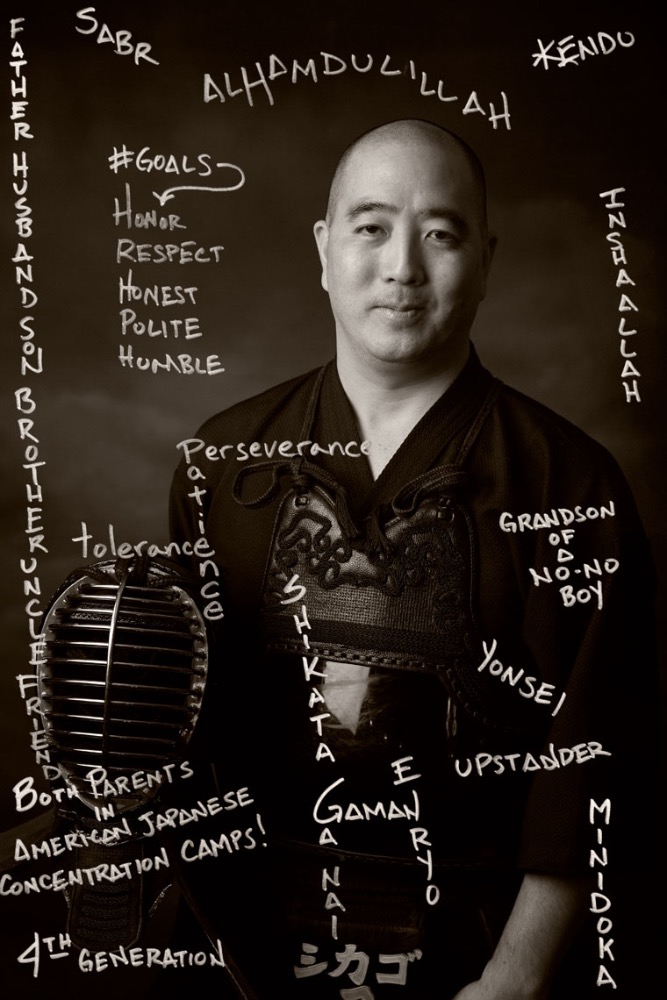 SABR
ALHAMDULILLAH
KENDO
FATHER HUSBAND SON BROTHER UNCLE FRIEND
#GOALS
HONOR
RESPECT
HONEST
POLITE
HUMBLE
INSHAALLAH
Perseverance
Patience
tolerance
GRANDSON
OF
A
NO-NO
BOY
SHIKATA GA NAI
YONSEI
UPSTANDER
ENRYO
GAMAN
BOTH PARENTS
IN
AMERICAN JAPANESE
CONCENTRATION CAMPS!
MINIDOKA
4TH GENERATION
シカゴ